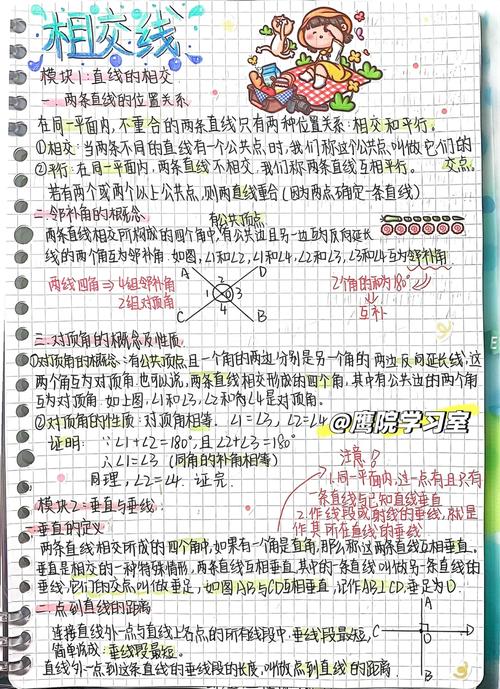 相交线
模块1:直线的相交
一 两条直线的位置关系
在同一平面内,不重合的两条直线只有两种位置关系:相交和平行。
①相交:当两条不同的直线有一个公共点时,我们称这个公共点叫做它们的
交点。
②平行:在同一平面内,两条直线不相交,我们称两条直线互相平行。
若有两个或两个以上公共点,则两直线重合(因为两点确定一条直线)
二 邻补角的概念
有公共顶点
两条直线相交所构成的四个角中,有公共边且另一边互为反向延长
线的两个角互为邻补角.如图,∠1和∠2,∠1和∠4,∠2和∠3,∠3和∠4互为邻补角
两线四角⇒4组邻补角
2组对顶角
A D
2
1 O 3
4
C B
2个角的和为180°
互补
三.对顶角的概念及性质
①对顶角的概念:有公共顶点且一个角的两边分别是另一个角的两边反向延长线,这
两个角互为对顶角.也可以说,两条直线相交形成的四个角,其中有公共边的两个角
互为对顶角.如上图,∠1和∠3,∠2和∠4是对顶角.
②对顶角的性质:对顶角相等. ∠1=∠3,∠2=∠4
@鹰院学习室
证明: ∵∠1+∠2=180°,且∠2+∠3=180°
∴∠1=∠3(同角的补角相等)
同理,∠2=∠4. 证完.
注意:
1.同一平面内,过一点有且只有
一条直线与已知直线垂直
2.作线段或射线的垂线,就是
作其所在直线的垂线
模块2:垂直与垂线
一垂直的定义
两条直线相交所成的四个角中,如果有一个角是直角,那么称这两条直线互相垂直.
垂直是相交的一种特殊情形,两条直线互相垂直,其中的一条直线叫做另一条直线的
垂线,它们的交点叫做垂足,如图AB与CD互相垂直,记作AB⊥CD,垂足为O.
二 点到直线的距离
连接直线外一点与直线上各点的所有线段中,垂线段最短,
简单说成:垂线段最短。
直线外一点到这条直线的垂线段的长度,叫做点到直线的距离.
A
C O D
B